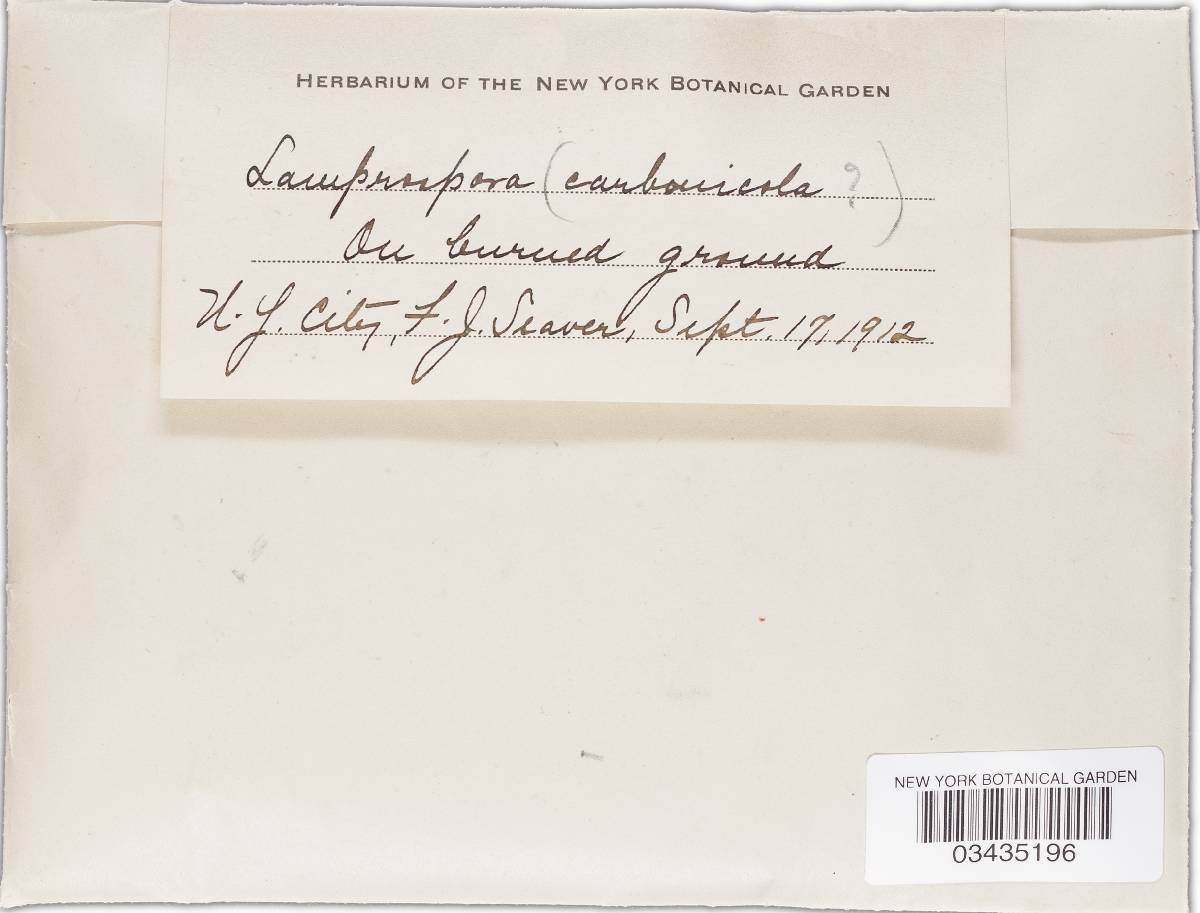 HERBARIUM OF THE NEW YORK BOTANICAL GARDEN
Lamprospora (carbonicola ?)
On burned ground
N. Y. City, F. J. Seaver, Sept. 17, 1912
NEW YORK BOTANICAL GARDEN
03435196